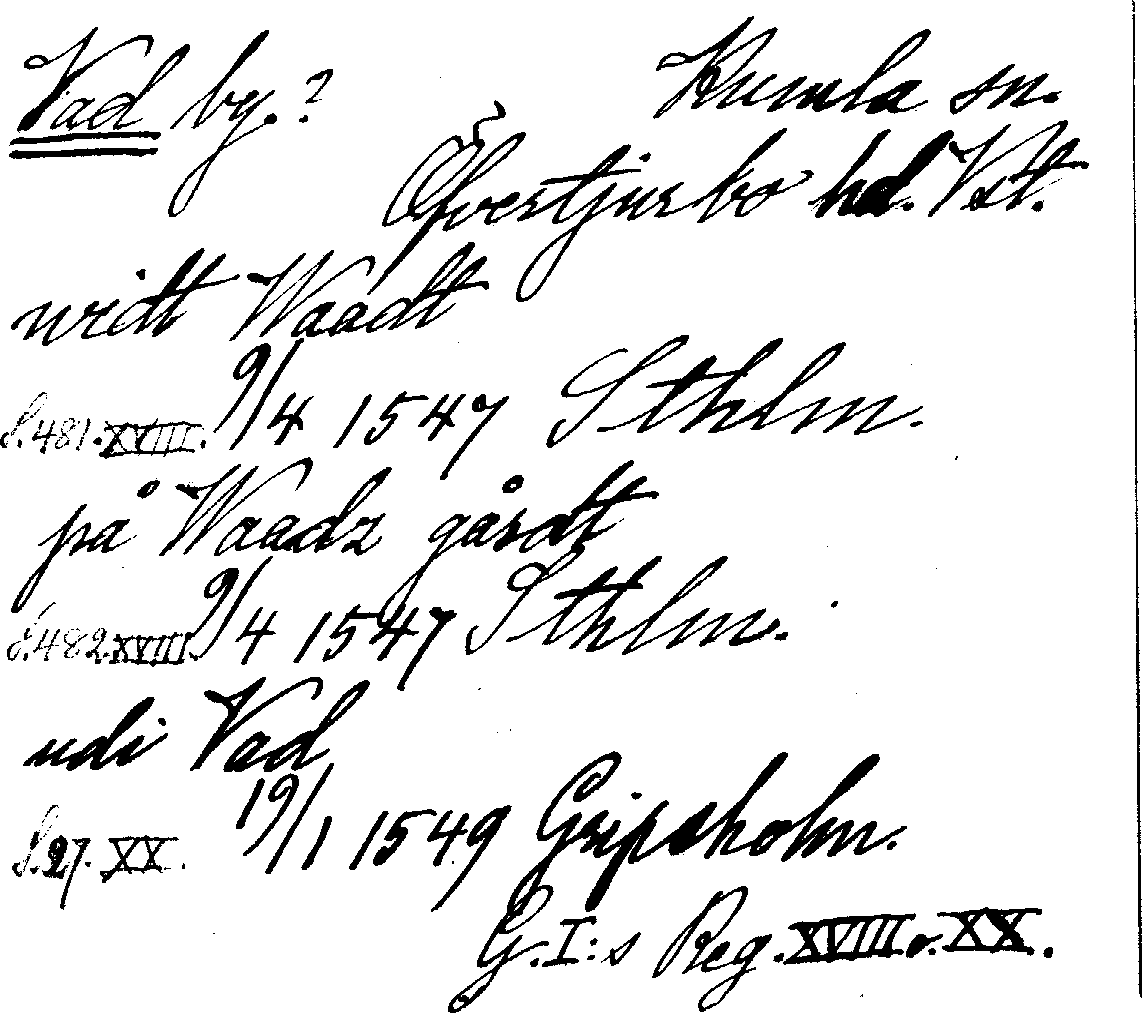 Vad by.? Kumla sn.
Öfvertjurbo hd. Vstl.
widt Waadt
S. 481. XVIII. 9/4 1547 Sthlm.
på Waadz gårdt
S. 482 XVIII. 9/4 1547 Sthlm.
udi Vad
S. 27. XX. 19/1 1549 Gripsholm.
G. I:s Reg. XVIII o. XX.